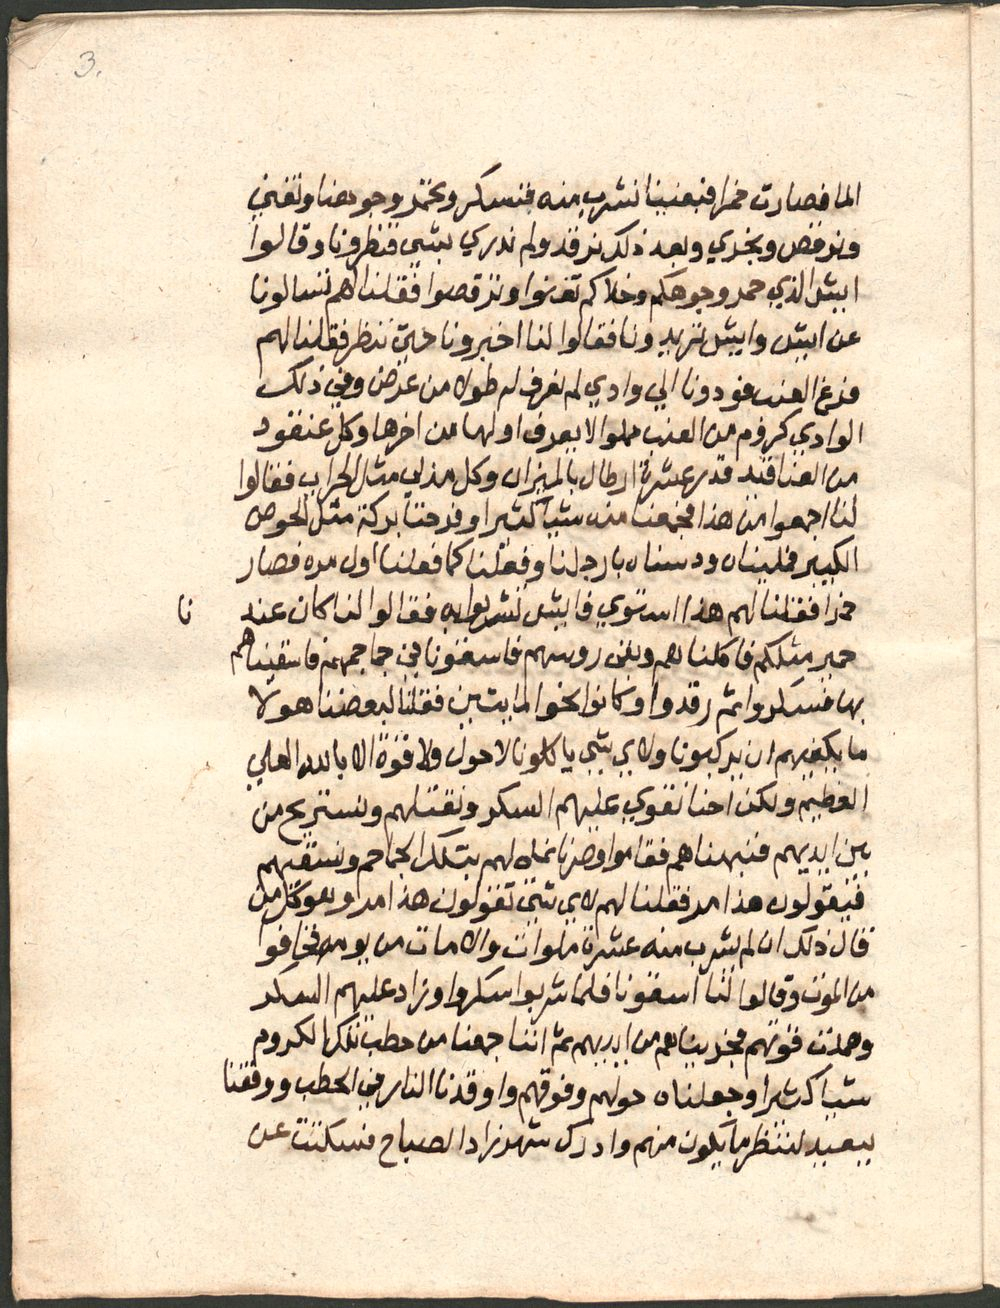 3.
الما فصارت خمرا فبقينا نشرب منه فنسكر وتحمر وجوهنا ونغني
ونرقص ونجري وبعد ذلك نرقد ولم ندري بشي فنظرونا وقالوا
ايش الذي حمر وجوهكم وخلاكم تغنوا وترقصوا فقلنا لهم تسالونا
عن ايش وايش تريدونا فقالوا لنا اخبرونا حتي ننظر فقلنا لهم
فرغ العنب فودونا الي وادي لم نعرف له طول من عرض وفي ذلك
الوادي كروم من العنب مملوا لا يعرف اولها من اخرها وكل عنقود
من العناقيد قدر عشرة ارطال بالميزان وكل مدلي مثل الجراب فقالوا
لنا اجمعوا من هذا فجمعنا منه شيا كثيرا وفرحتنا بركة مثل الحوض
الكبير فمليناه ودسناه بارجلنا وفعلنا كما فعلنا اول مره فصار
خمرا فقلنا لهم هذا استوي فايش تشربوا به فقالوا لنا كان عند نا
حمير مثلكم فاكلناهم وبقي روسهم فاسقونا في جماجمهم فاسقيناهم
بها فسكروا ثم رقدوا وكانوا نحو المايتين فقلنا لبعضنا هولا
ما يكفيهم ان يركبونا ولاي شي ياكلونا لا حول ولا قوة الا بالله العلي
العظيم ولكن احنا نقوي عليهم السكر ونقتلهم ونستريح من
بين ايديهم فنبهناهم فقاموا وصرنا نملا لهم بتلك الجماجم ونسقيهم
فيقولون هذا مر فقلنا لهم لاي شي تقولون هذا مر وهو كل من
قال ذلك ان لم يشرب منه عشرة مرات والا مات من يومه فخافوا
من الموت وقالوا لنا اسقونا فلما شربوا سكروا وزاد عليهم السكر
وهمدت قوتهم فجريناهم من ايديهم ثم اننا جمعنا من حطب تلك الكروم
شيا كثيرا وجعلناه حولهم وفوقهم واوقدنا النار في الحطب ووقفنا
ببعيد لننظر ما يكون منهم وادرك شهرزاد الصباح فسكتت عن